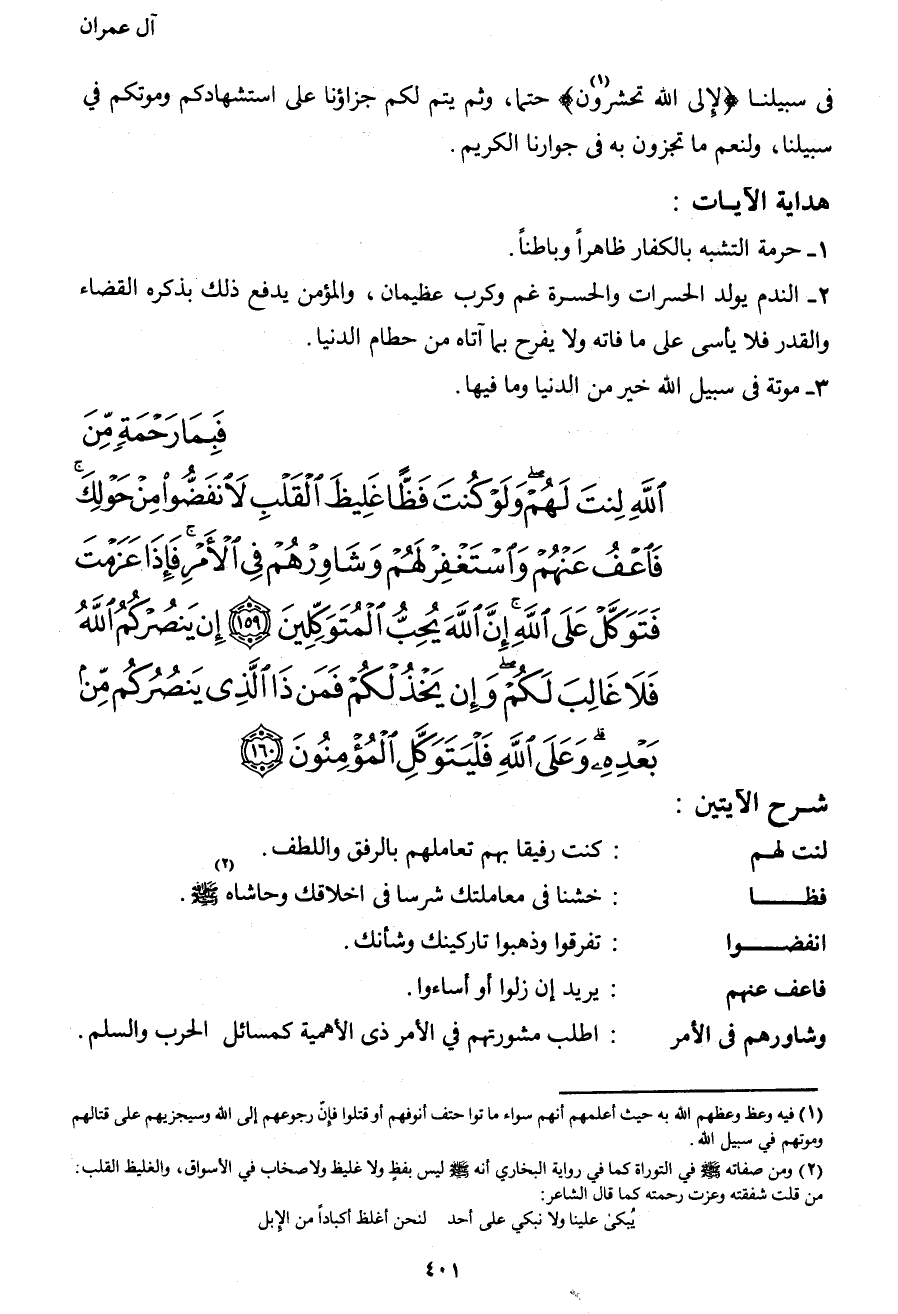 آل عمران
فى سبيلنـا ﴿لإلى الله تحشرون﴾(١) حتما، وثم يتم لكم جزاؤنا على استشهادكم وموتكم في
سبيلنا، ولنعم ما تجزون به فى جوارنا الكريم.
هداية الآيـات :
١ـ حرمة التشبه بالكفار ظاهراً وباطناً.
٢ـ الندم يولد الحسرات والحسرة غم وكرب عظيمان، والمؤمن يدفع ذلك بذكره القضاء
والقدر فلا يأسى على ما فاته ولا يفرح بما آتاه من حطام الدنيا.
٣ـ موتة فى سبيل الله خير من الدنيا وما فيها.
فَبِمَا رَحْمَةٍ مِّنَ
ٱللَّهِ لِنتَ لَهُمْ ۖ وَلَوْ كُنتَ فَظًّا غَلِيظَ ٱلْقَلْبِ لَٱنفَضُّوا۟ مِنْ حَوْلِكَ ۖ
فَٱعْفُ عَنْهُمْ وَٱسْتَغْفِرْ لَهُمْ وَشَاوِرْهُمْ فِى ٱلْأَمْرِ ۖ فَإِذَا عَزَمْتَ
فَتَوَكَّلْ عَلَى ٱللَّهِ ۚ إِنَّ ٱللَّهَ يُحِبُّ ٱلْمُتَوَكِّلِينَ ﴿١٥٩﴾ إِن يَنصُرْكُمُ ٱللَّهُ
فَلَا غَالِبَ لَكُمْ ۖ وَإِن يَخْذُلْكُمْ فَمَن ذَا ٱلَّذِى يَنصُرُكُم مِّنۢ
بَعْدِهِۦ ۗ وَعَلَى ٱللَّهِ فَلْيَتَوَكَّلِ ٱلْمُؤْمِنُونَ ﴿١٦٠﴾
شـرح الآيتين :
لنت لهـم : كنت رفيقا بهم تعاملهم بالرفق واللطف.
فظـــــا : خشنا فى معاملتك شرسا فى اخلاقك وحاشاه ﷺ(٢).
انفضـــــوا : تفرقوا وذهبوا تاركينك وشأنك.
فاعف عنهم : يريد إن زلوا أو أساءوا.
وشاورهم فى الأمر : اطلب مشورتهم في الأمر ذى الأهمية كمسائل الحرب والسلم.
(١) فيه وعظ وعظهم الله به حيث أعلمهم أنهم سواء ماتوا حتف أنوفهم أو قتلوا فإنّ رجوعهم إلى الله وسيجزيهم على قتالهم
وموتهم في سبيل الله.
(٢) ومن صفاته ﷺ في التوراة كما في رواية البخاري أنه ﷺ ليس بفظٍ ولا غليظ ولاصخاب في الأسواق، والغليظ القلب:
من قلت شفقته وعزت رحمته كما قال الشاعر:
يُبكىٰ علينا ولا نبكي على أحد لنحن أغلظ أكباداً من الإبل
٤٠١